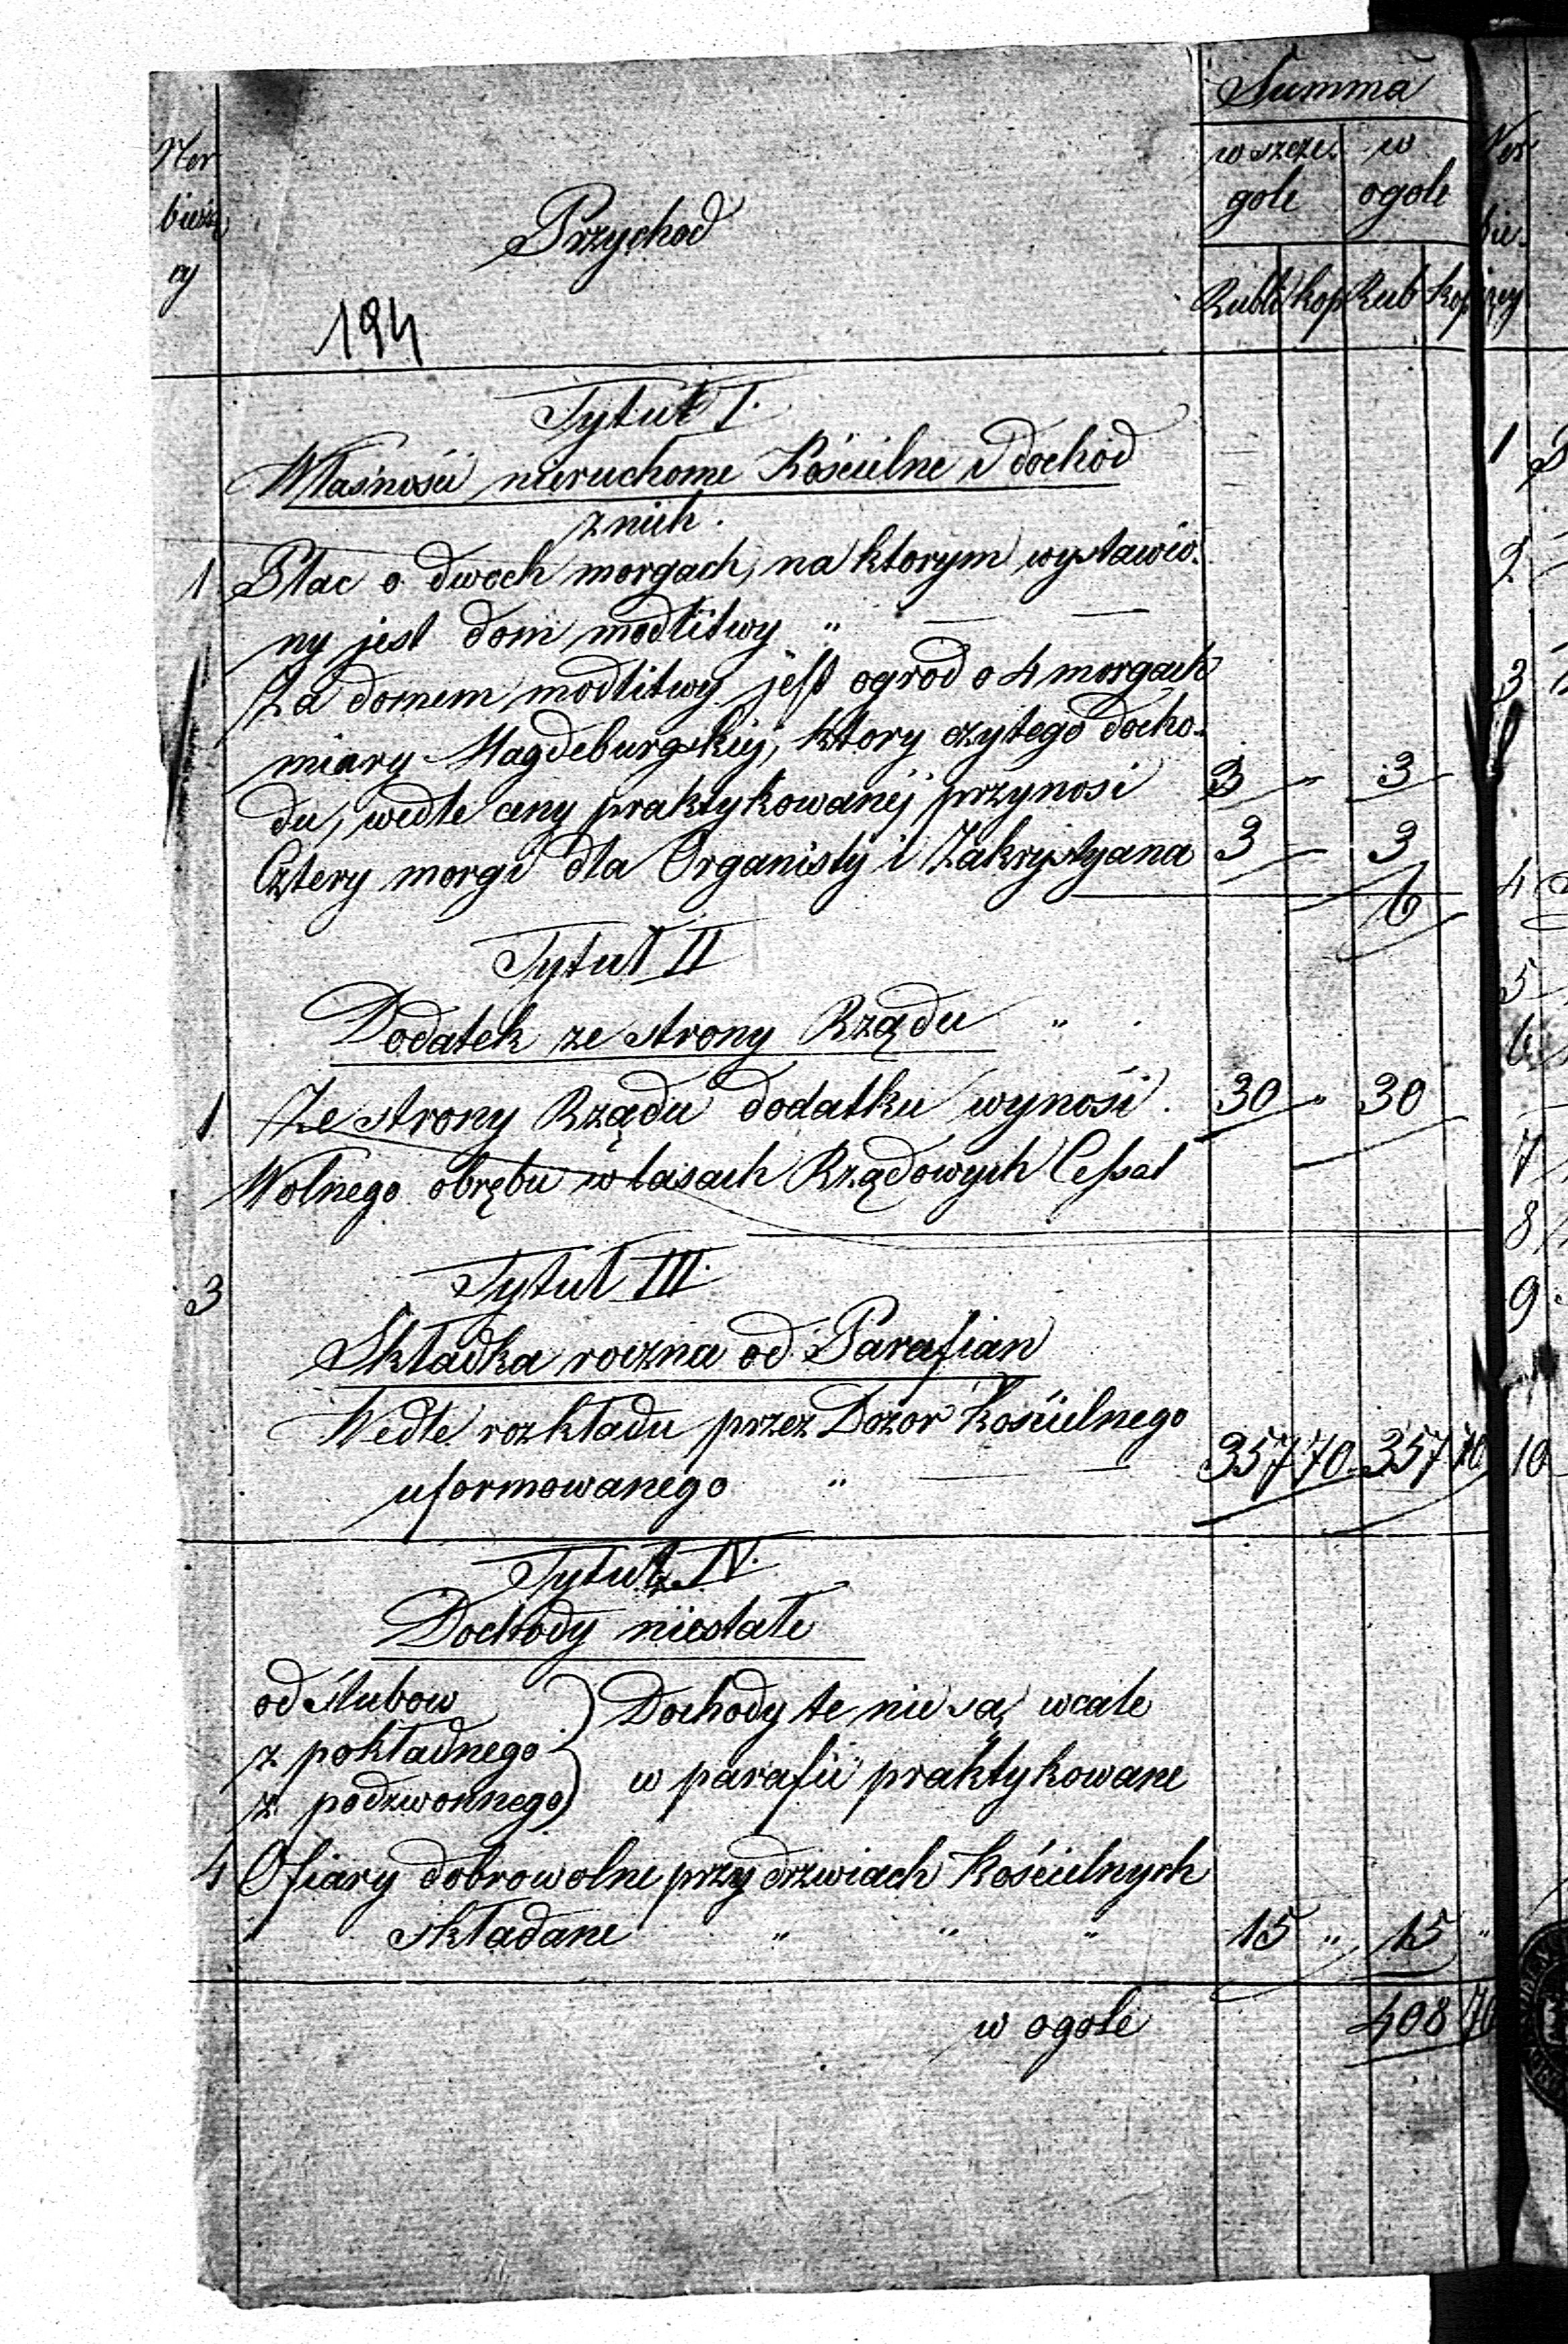 Summa
Ner
bieżą
cy
Przychod
w szcze-
gole
w
ogole
Rubli kop Rub kop
194
Tytuł I.
Własności nieruchome Kościelne i dochod
z nich.
1 Plac o dwoch morgach, na ktorym wystawio-
ny jest dom modlitwy "
Za domem modlitwy jest ogrod o 4 morgach
miary Magdeburgskiej, ktory czytego docho-
du, wedle ceny praktykowanej przynosi 3 " 3
Cztery morgi dla Organisty i Zakrystyana 3 — 3
6
Tytuł II
Dodatek ze strony Rządu "
1 Ze strony Rządu dodatku wynosi. 30 " 30
Wolnego obrębu w lasach Rządowych
3 Tytuł III.
Składka roczna od Parafian
Wedle rozkładu przez Dozor Kościelnego
uformowanego " 357 70 357 70
Tytuł IV.
Dochody niestałe
od slubow
z pokładnego
z podzwonnego
Dochody te nie są wcale
w parafii praktykowane
4 Ofiary dobrowolne przy drzwiach Kościelnych
składane " " " 15 " 15 "
w ogole 408 70
1
2
3
4
5
6
7
8
9
10